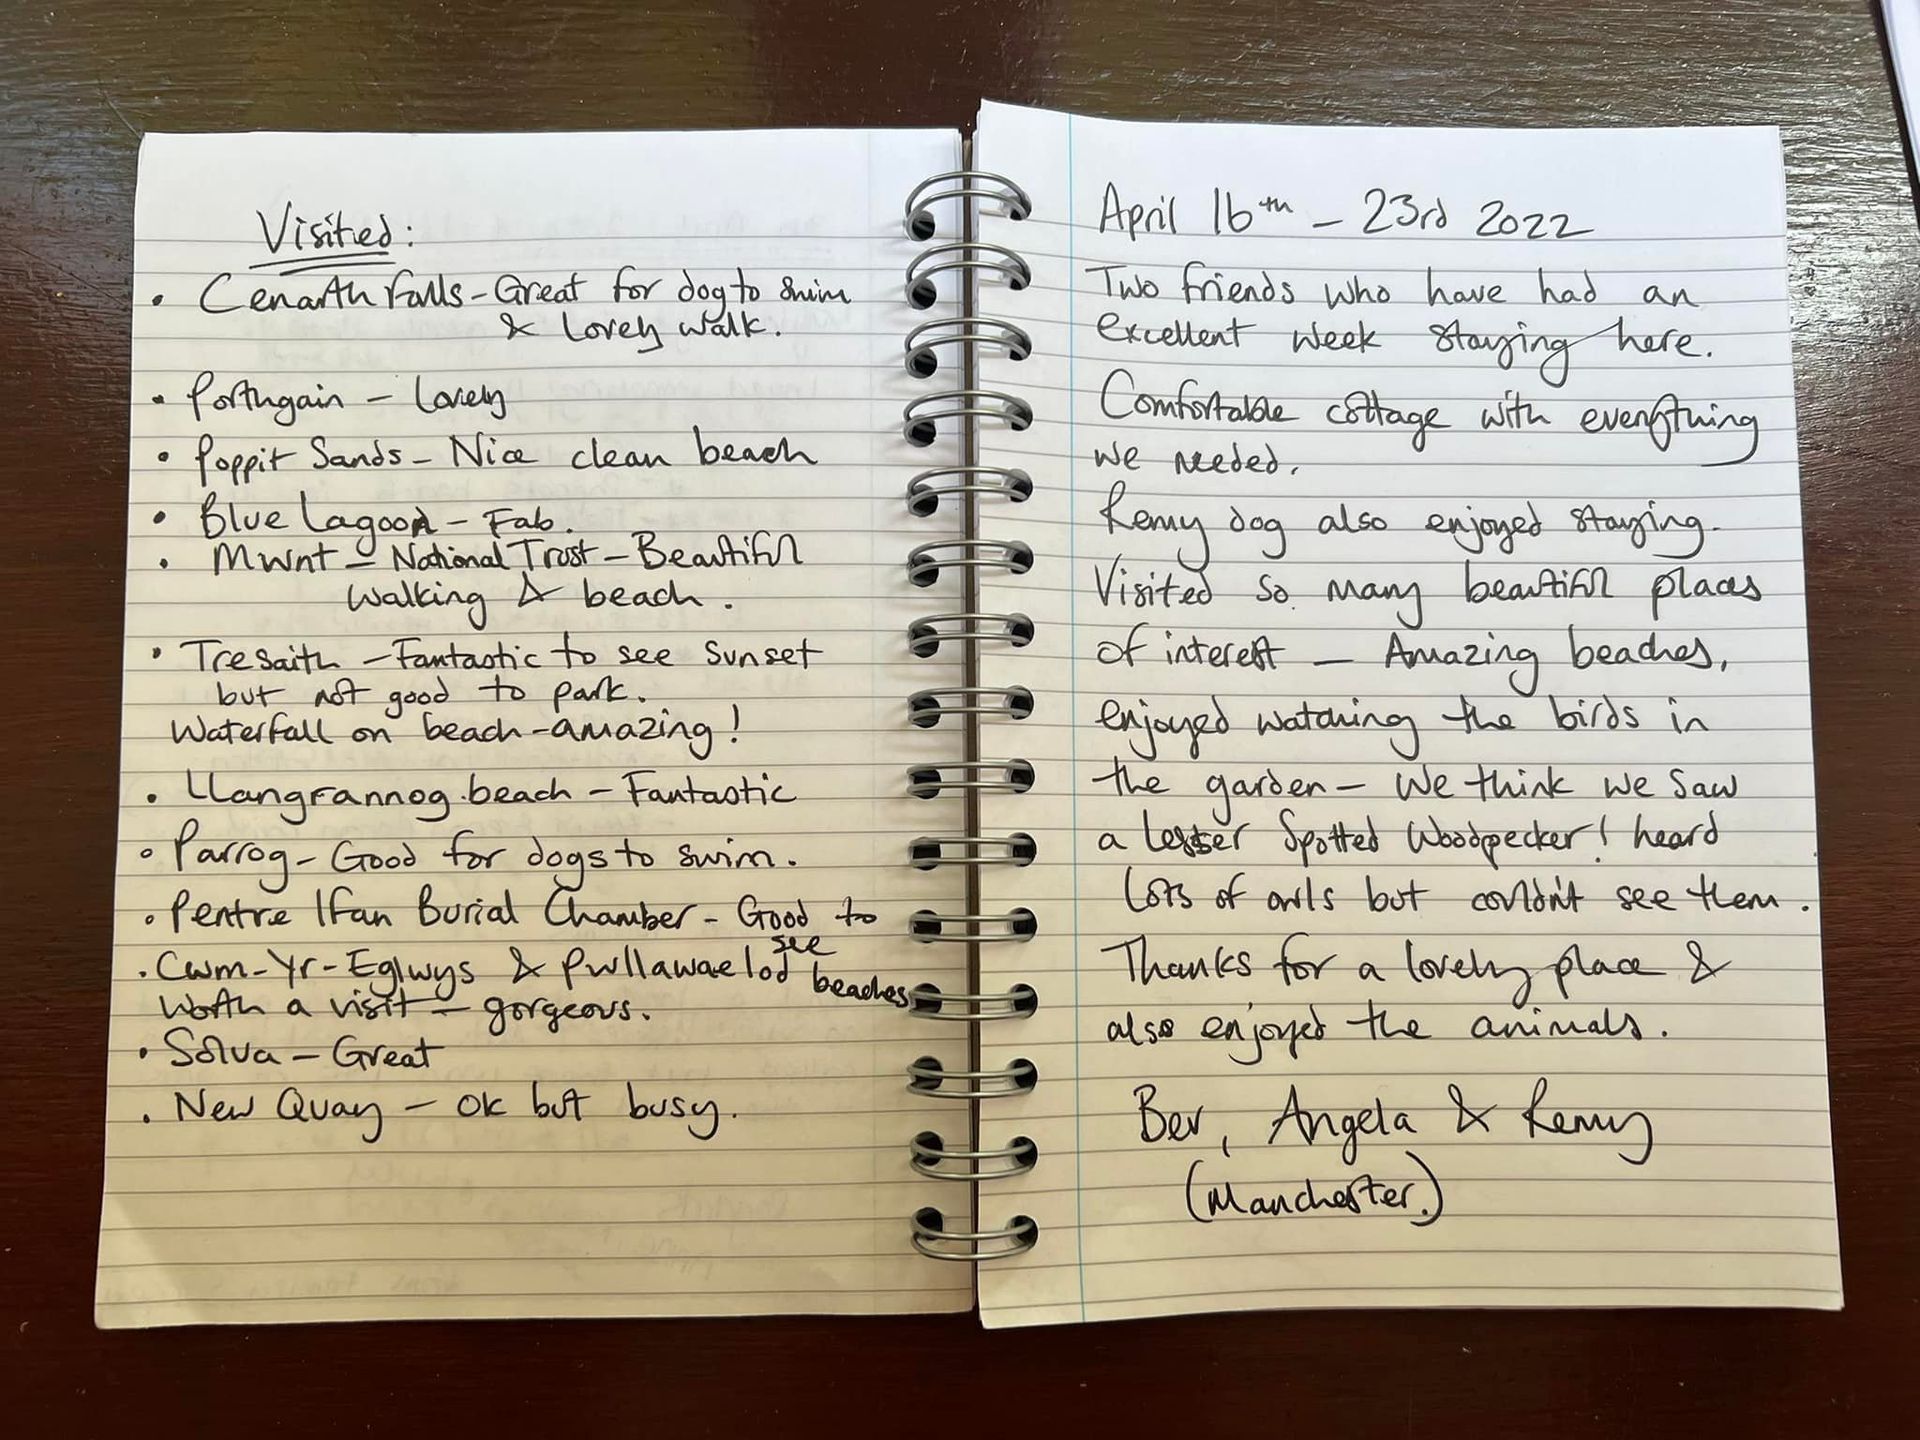 Visited:
• Cenarth Falls - Great for dog to swim
& Lovely walk.
• Porthgain - Lovely
• Poppit Sands - Nice clean beach
• Blue Lagoon - Fab.
• Mwnt - National Trust - Beautiful
walking & beach.
• Tresaith - Fantastic to see sunset
but not good to park.
Waterfall on beach - amazing!
• Llangrannog beach - Fantastic
• Parrog - Good for dogs to swim.
• Pentre Ifan Burial Chamber - Good to
see
• Cwm-Yr-Eglwys & Pwllawaelod beaches
worth a visit - gorgeous.
• Solva - Great
• New Quay - Ok but busy.
April 16th - 23rd 2022
Two friends who have had an
excellent week staying here.
Comfortable cottage with everything
we needed.
Remy dog also enjoyed staying.
Visited so many beautiful places
of interest - Amazing beaches,
enjoyed watching the birds in
the garden - We think we saw
a lesser Spotted Woodpecker! heard
Lots of owls but couldn't see them.
Thanks for a lovely place &
also enjoyed the animals.
Bev, Angela & Remy
(Manchester.)